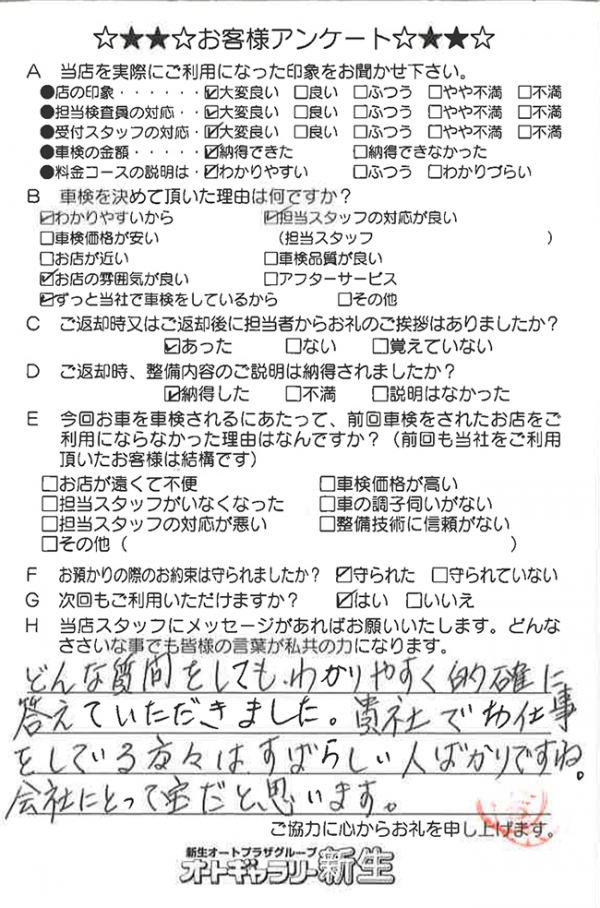 ☆★★☆お客様アンケート☆★★☆
A 当店を実際にご利用になった印象をお聞かせ下さい。
●店の印象・・・・・・☑大変良い □良い □ふつう □やや不満 □不満
●担当検査員の対応・・☑大変良い □良い □ふつう □やや不満 □不満
●受付スタッフの対応・☑大変良い □良い □ふつう □やや不満 □不満
●車検の金額・・・・・☑納得できた □納得できなかった
●料金コースの説明は・☑わかりやすい □ふつう □わかりづらい
B 車検を決めて頂いた理由は何ですか？
☑わかりやすいから ☑担当スタッフの対応が良い
□車検価格が安い （担当スタッフ ）
□お店が近い □車検品質が良い
☑お店の雰囲気が良い □アフターサービス
☑ずっと当社で車検をしているから □その他
C ご返却時又はご返却後に担当者からお礼のご挨拶はありましたか？
☑あった □ない □覚えていない
D ご返却時、整備内容のご説明は納得されましたか？
☑納得した □不満 □説明はなかった
E 今回お車を車検されるにあたって、前回車検をされたお店をご
利用にならなかった理由はなんですか？（前回も当社をご利用
頂いたお客様は結構です）
□お店が遠くて不便 □車検価格が高い
□担当スタッフがいなくなった □車の調子伺いがない
□担当スタッフの対応が悪い □整備技術に信頼がない
□その他（ ）
F お預かりの際のお約束は守られましたか？ ☑守られた □守られていない
G 次回もご利用いただけますか？ ☑はい □いいえ
H 当店スタッフにメッセージがあればお願いいたします。どんな
ささいな事でも皆様の言葉が私共の力になります。
どんな質問をしても、わかりやすく的確に
答えていただきました。貴社でお仕事
をしている方々は、すばらしい人ばかりですね。
会社にとって宝だと思います。
ご協力に心からお礼を申し上げます。
新生オートプラザグループ
オートギャラリー新生